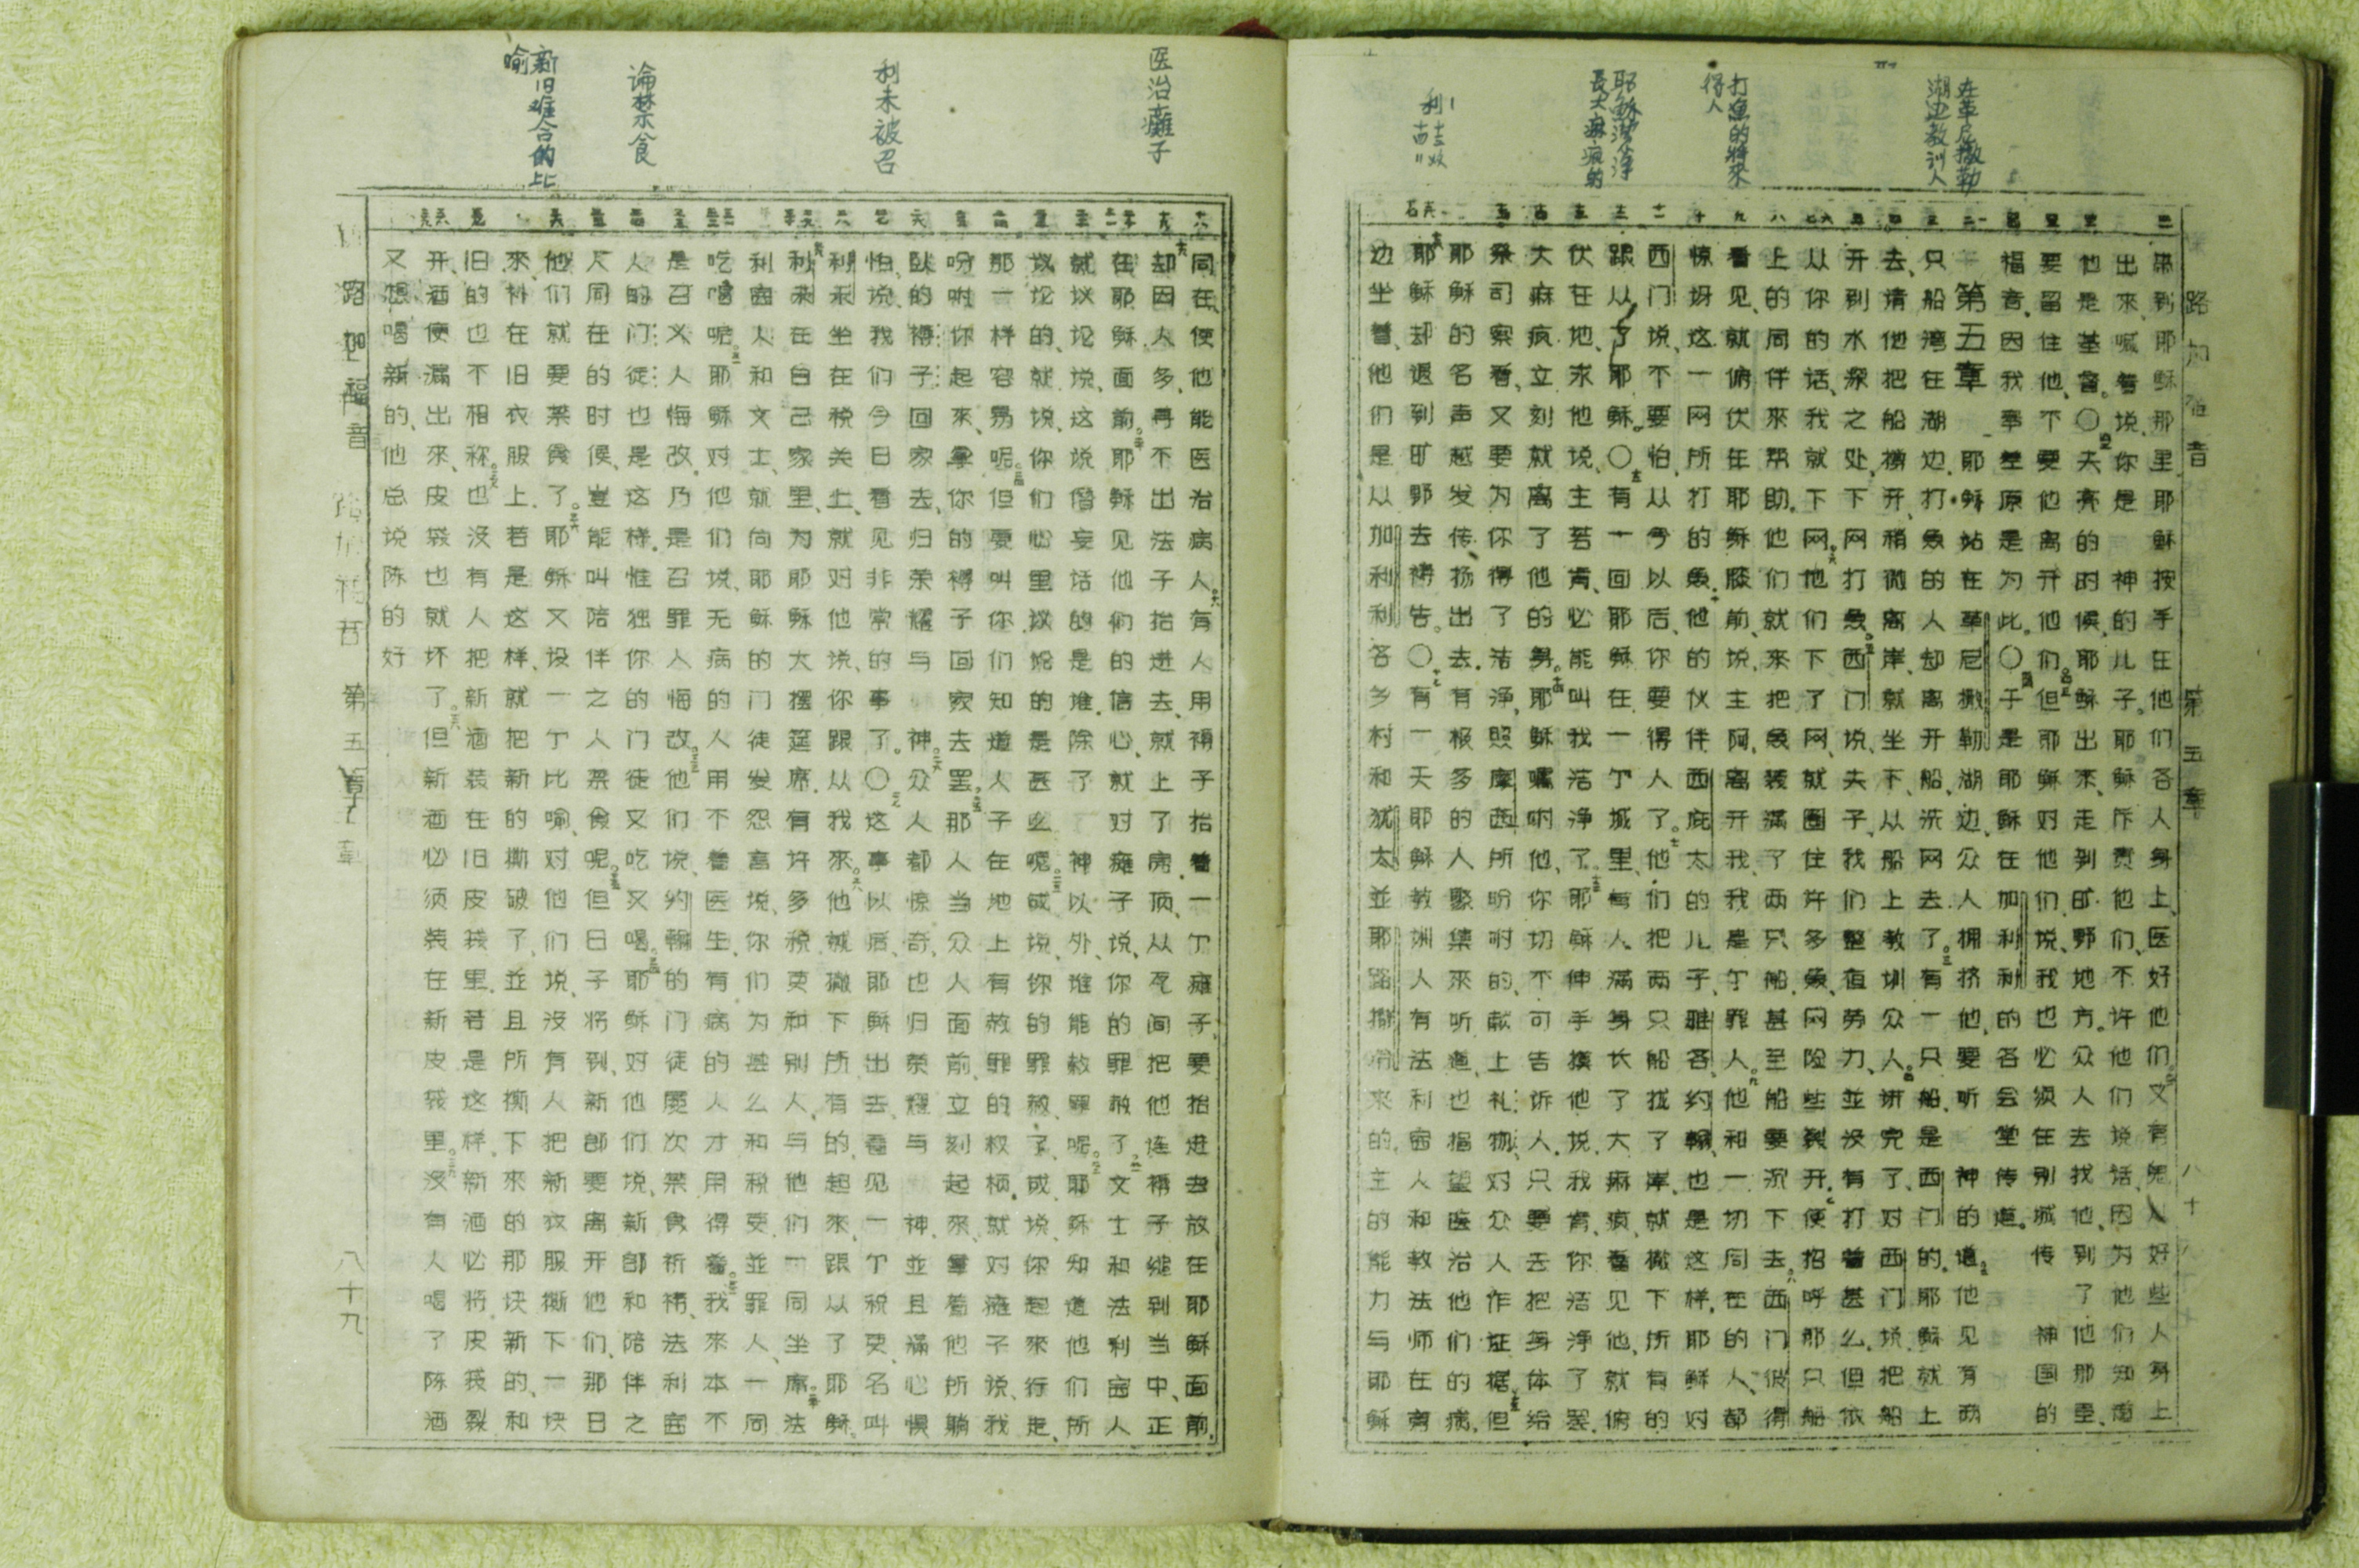 在革尼撒勒
湖边教训人
打渔的将來
得人
耶稣潔淨
長大麻疯的
路加福音 第五章
带到耶稣那里耶稣按手在他们各人身上、医好他们。又有鬼从好些人身上
出來、喊着说、你是 神的儿子。耶稣斥责他们、不许他们说话、因为他们知道
他是基督。○天亮的时候、耶稣出來、走到旷野地方。众人去找他、到了他那里、
要留住他、不要他离开他们。但耶稣对他们说、我也必须在别城传 神国的
福音、因我奉差原是为此。○于是耶稣在加利利的各会堂传道。
第五章 耶稣站在革尼撒勒湖边、众人拥挤他、要听 神的道。他见有两
只船湾在湖边、打鱼的人却离开船、洗网去了。有一只船、是西门的。耶稣就上
去、请他把船撑开、稍微离岸、就坐下、从船上教训众人。讲完了、对西门说、把船
开到水深之处、下网打鱼。西门说、夫子、我们整夜劳力、並没有打着甚么、但依
从你的话、我就下网。他们下了网、就圈住许多鱼、网险些裂开。便招呼那只船
上的同伴來帮助。他们就來把鱼装满了两只船、甚至船要沉下去。西门彼得
看见、就俯伏在耶稣膝前、说、主阿、离开我、我是个罪人。他和一切同在的人、都
惊讶这一网所打的鱼。他的伙伴西庇太的儿子、雅各、约翰、也是这样。耶稣对
西门说、不要怕、从今以后、你要得人了。他们把两只船拢了岸、就撇下所有的
跟从了耶稣。○有一回耶稣在一个城里、有人满身长了大麻疯、看见他、就俯
伏在地、求他说、主若肯、必能叫我洁净了。耶稣伸手摸他说、我肯、你洁净了罢、
大麻疯立刻就离了他的身。耶稣嘱咐他、你切不可告诉人、只要去把身体给
祭司察看、又要为你得了洁净、照摩西所吩咐的、献上礼物、对众人作证据。但
耶稣的名声越发传扬出去。有极多的人聚集來听道、也指望医治他们的病。
耶稣却退到旷野去祷告。○有一天耶稣教训人、有法利赛人和教法师在旁
边坐着、他们是从加利利各乡村和犹太並耶路撒冷來的。主的能力与耶稣
医治癱子
利未被召
论禁食
新旧难合的比
喻
同在、使他能医治病人。有人用褥子抬着一个瘫子、要抬进去放在耶稣面前、
却因人多、寻不出法子抬进去、就上了房顶、从瓦间把他连褥子缒到当中、正
在耶稣面前。耶稣见他们的信心、就对瘫子说、你的罪赦了。文士和法利赛人
就议论说、这说僭妄话的是谁。除了 神以外、谁能赦罪呢。耶稣知道他们所
议论的、就说、你们心里议论的是甚么呢。或说、你的罪赦了、或说、你起來行走、
那一样容易呢。但要叫你们知道人子在地上有赦罪的权柄、就对瘫子说、我
吩咐你起來、拿你的褥子回家去罢。那人当众人面前、立刻起來、拿着他所躺
卧的褥子回家去、归荣耀与 神。众人都惊奇、也归荣耀与 神、並且满心惧
怕、说、我们今日看见非常的事了。○这事以后、耶稣出去、看见一个税吏、名叫
利未、坐在税关上、就对他说、你跟从我來。他就撇下所有的、起來、跟从了耶稣。
利未在自己家里、为耶稣大摆筵席、有许多税吏和别人、与他们一同坐席。法
利赛人和文士、就向耶稣的门徒发怨言说、你们为甚么和税吏並罪人、一同
吃喝呢。耶稣对他们说、无病的人用不着医生、有病的人才用得着。我來本不
是召义人悔改、乃是召罪人悔改。他们说、约翰的门徒屡次禁食祈祷、法利赛
人的门徒也是这样。惟独你的门徒又吃又喝。耶稣对他们说、新郎和陪伴之
人同在的时候、岂能叫陪伴之人禁食呢。但日子将到、新郎要离开他们、那日
他们就要禁食了。耶稣又设一个比喻、对他们说、没有人把新衣服撕下一块
來、补在旧衣服上、若是这样、就把新的撕破了、並且所撕下來的那块新的、和
旧的也不相称。也没有人把新酒装在旧皮袋里、若是这样、新酒必将皮袋裂
开、酒便漏出來、皮袋也就坏了。但新酒必须装在新皮袋里。没有人喝了陈酒
又想喝新的、他总说陈的好
路加福音 第五章 八十九